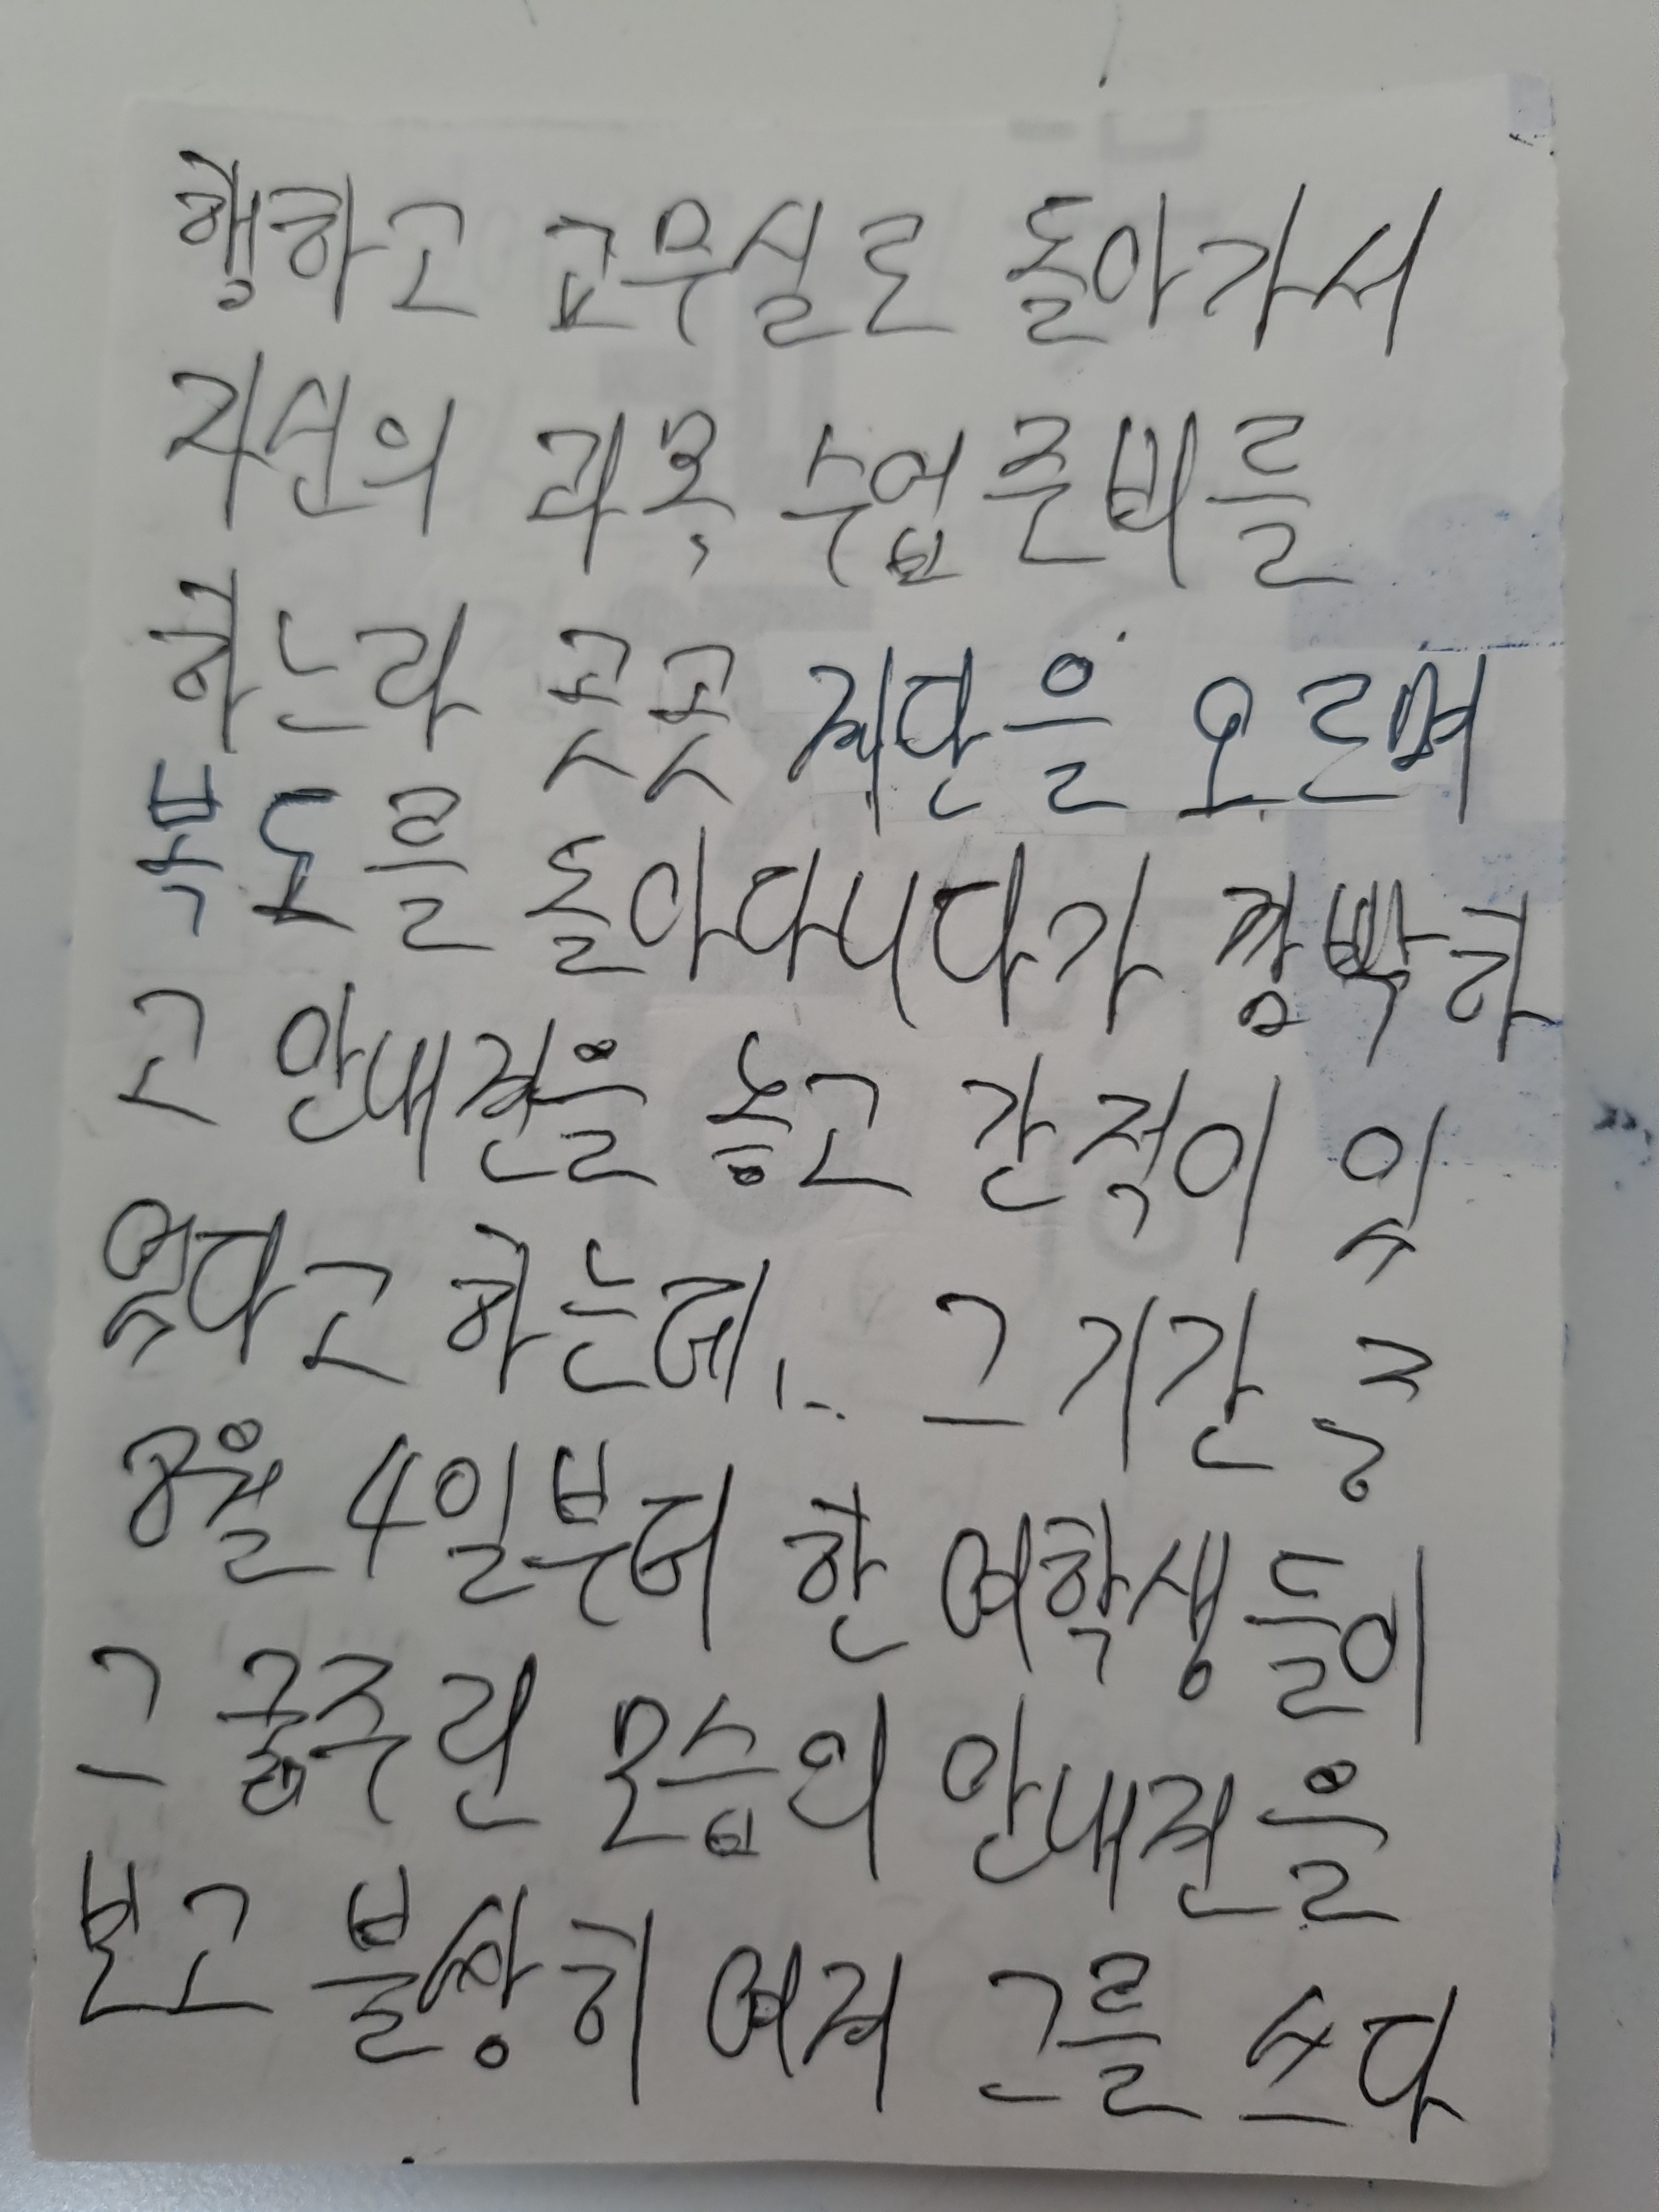 행하고 교무실로 돌아가서
자신의 과목 수업준비를
하느라 곳곳 계단을 오르며
복도를 돌아다니다가 깜빡하
고 안내견을 놓고 간적이 있
었다고 하는데... 그 기간 중
8월 4일부터 한 여학생들이
그 굶주린 모습의 안내견을
보고 불쌍히 여겨 그를 쓰다